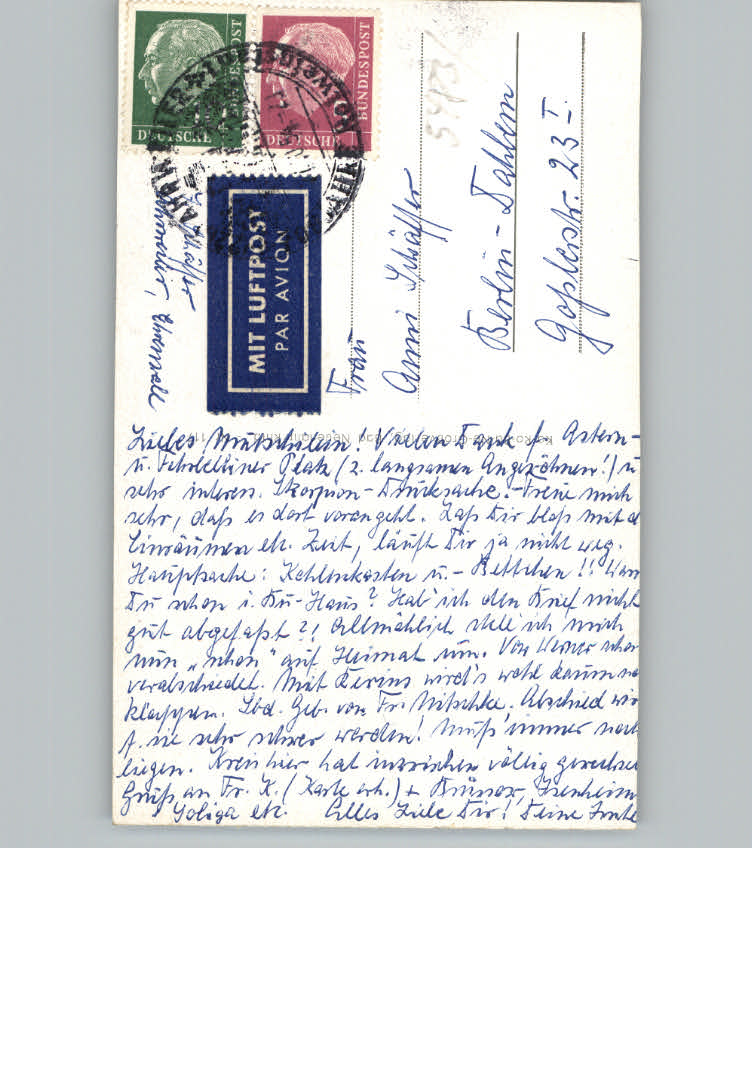 DEUTSCHE BUNDESPOST
DEUTSCHE BUNDESPOST
MIT LUFTPOST
PAR AVION
Schäffer
Ahrweiler, Ehrenwall
Frau
Anni Schäffer
Berlin-Dahlem
Goßlerstr. 23 I.
Liebes Mutschilein! Vielen Dank f. Astern-
u. Fehrbelliner Platz (z. langsamen Angewöhnen!) u
sehr interess. Skorpion-Drucksache. - Freue mich
sehr, daß es dort vorangeht. Laß Dir bloß mit d
Einräumen etc. Zeit, läuft Dir ja nicht weg.
Hauptsache: Kohlenkasten u. - Bettchen!! Warst
Du schon i. Haus? Hab' ich den Brief nicht
gut abgefaßt?! Allmählich stelle ich mich
nun "schon" auf Heimat um. Von Werner schon
verabschiedet. Mit wird's wohl kaum no
klappen. Geb. von Fr. Nitschke. Abschied wir
f. sie sehr schwer werden! Muß immer noch
liegen. Kreis hier hat inzwischen völlig gewechse
Gruß an Fr. K. (Karte erh.) + Isenheim
etc. Alles Liebe Dir! Deine